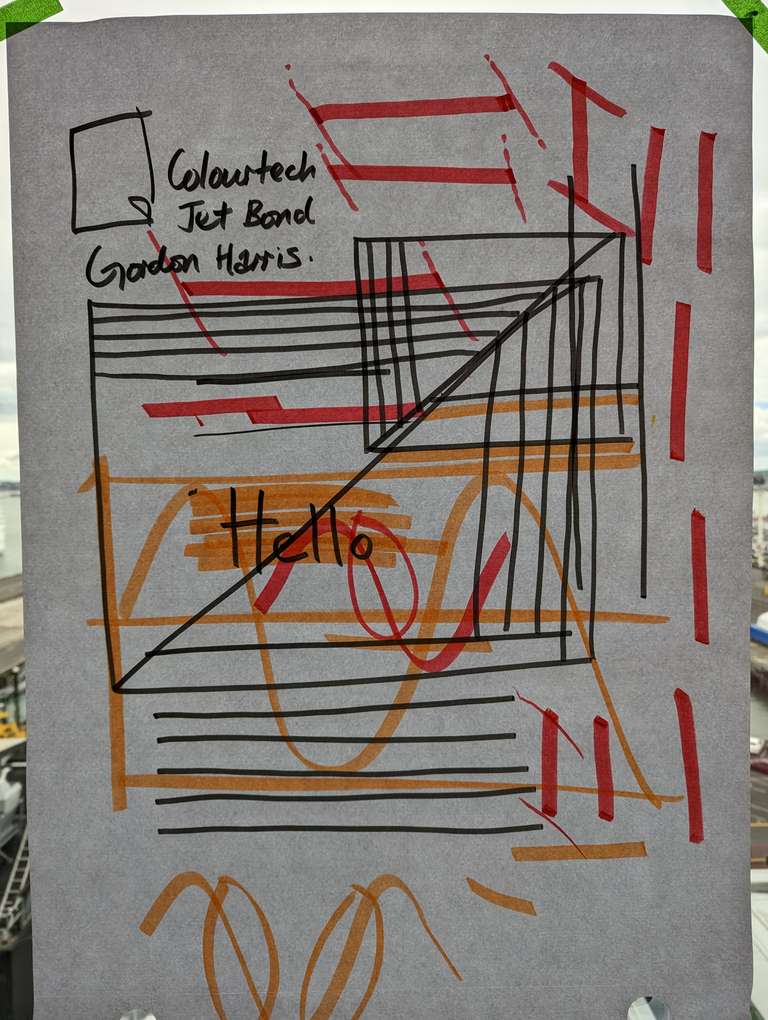 Colourtech
Jet Bond
Gordon Harris.
Hello